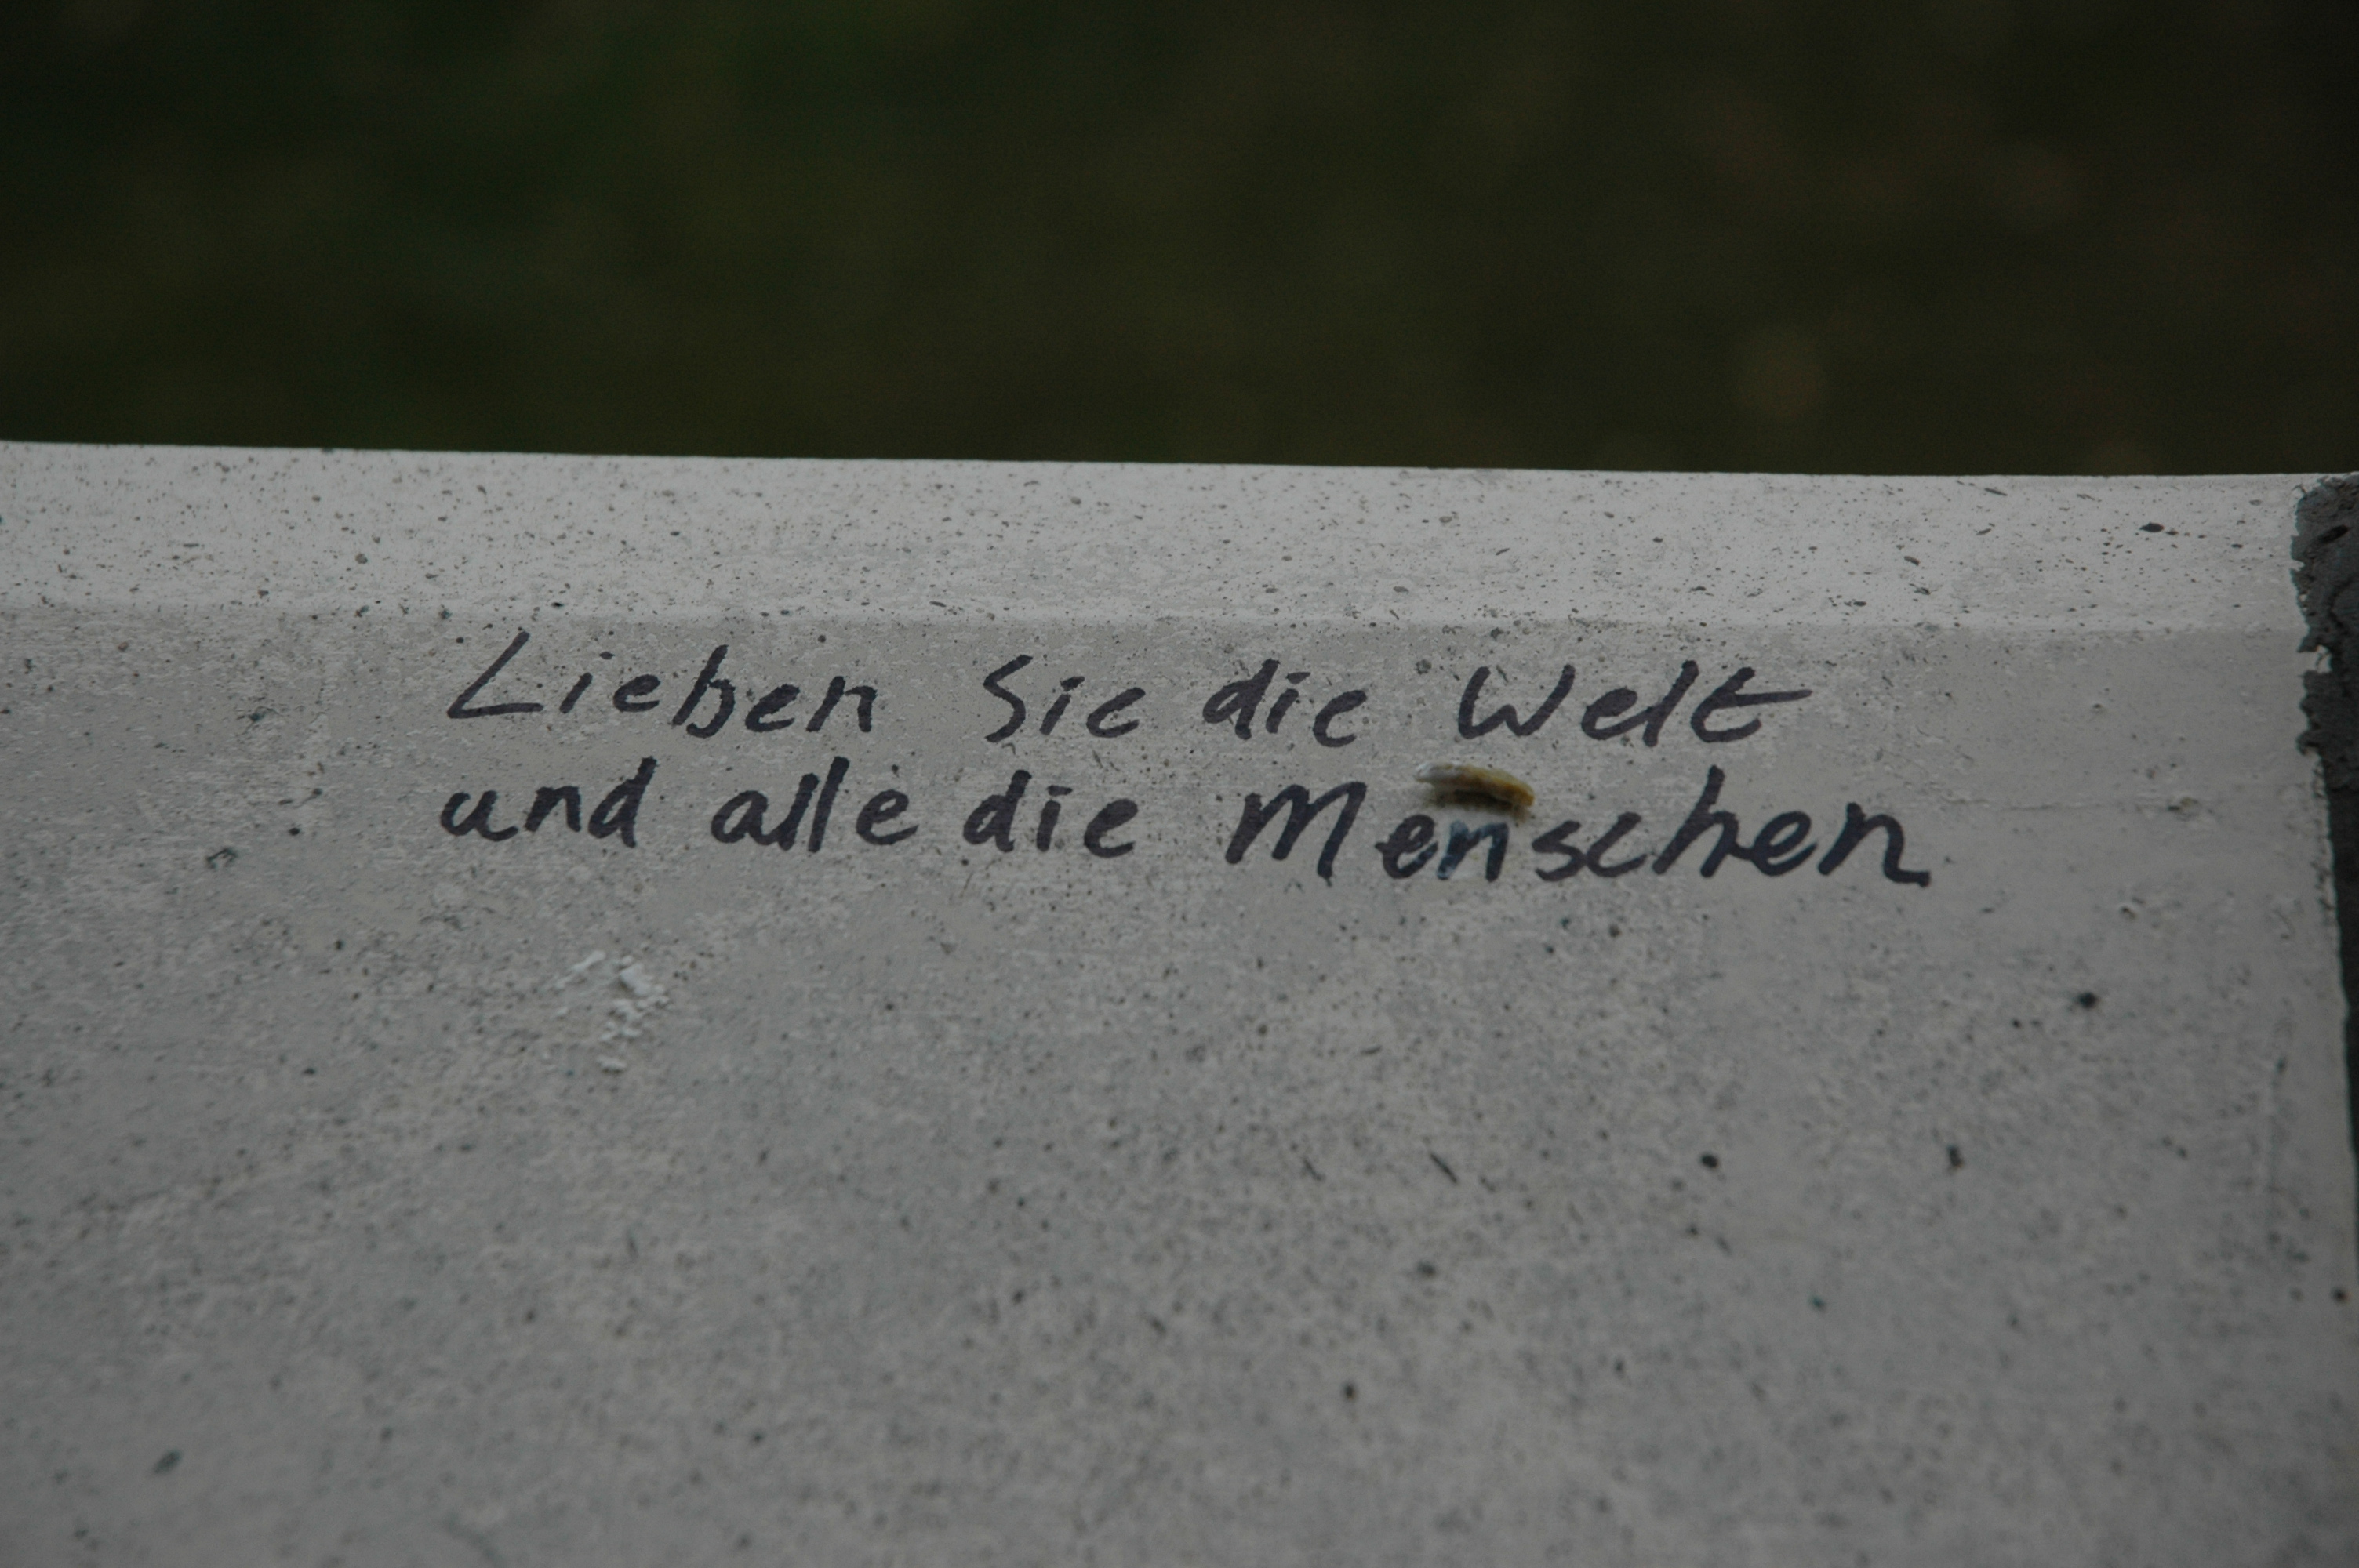 Lieben Sie die Welt
und alle die Menschen